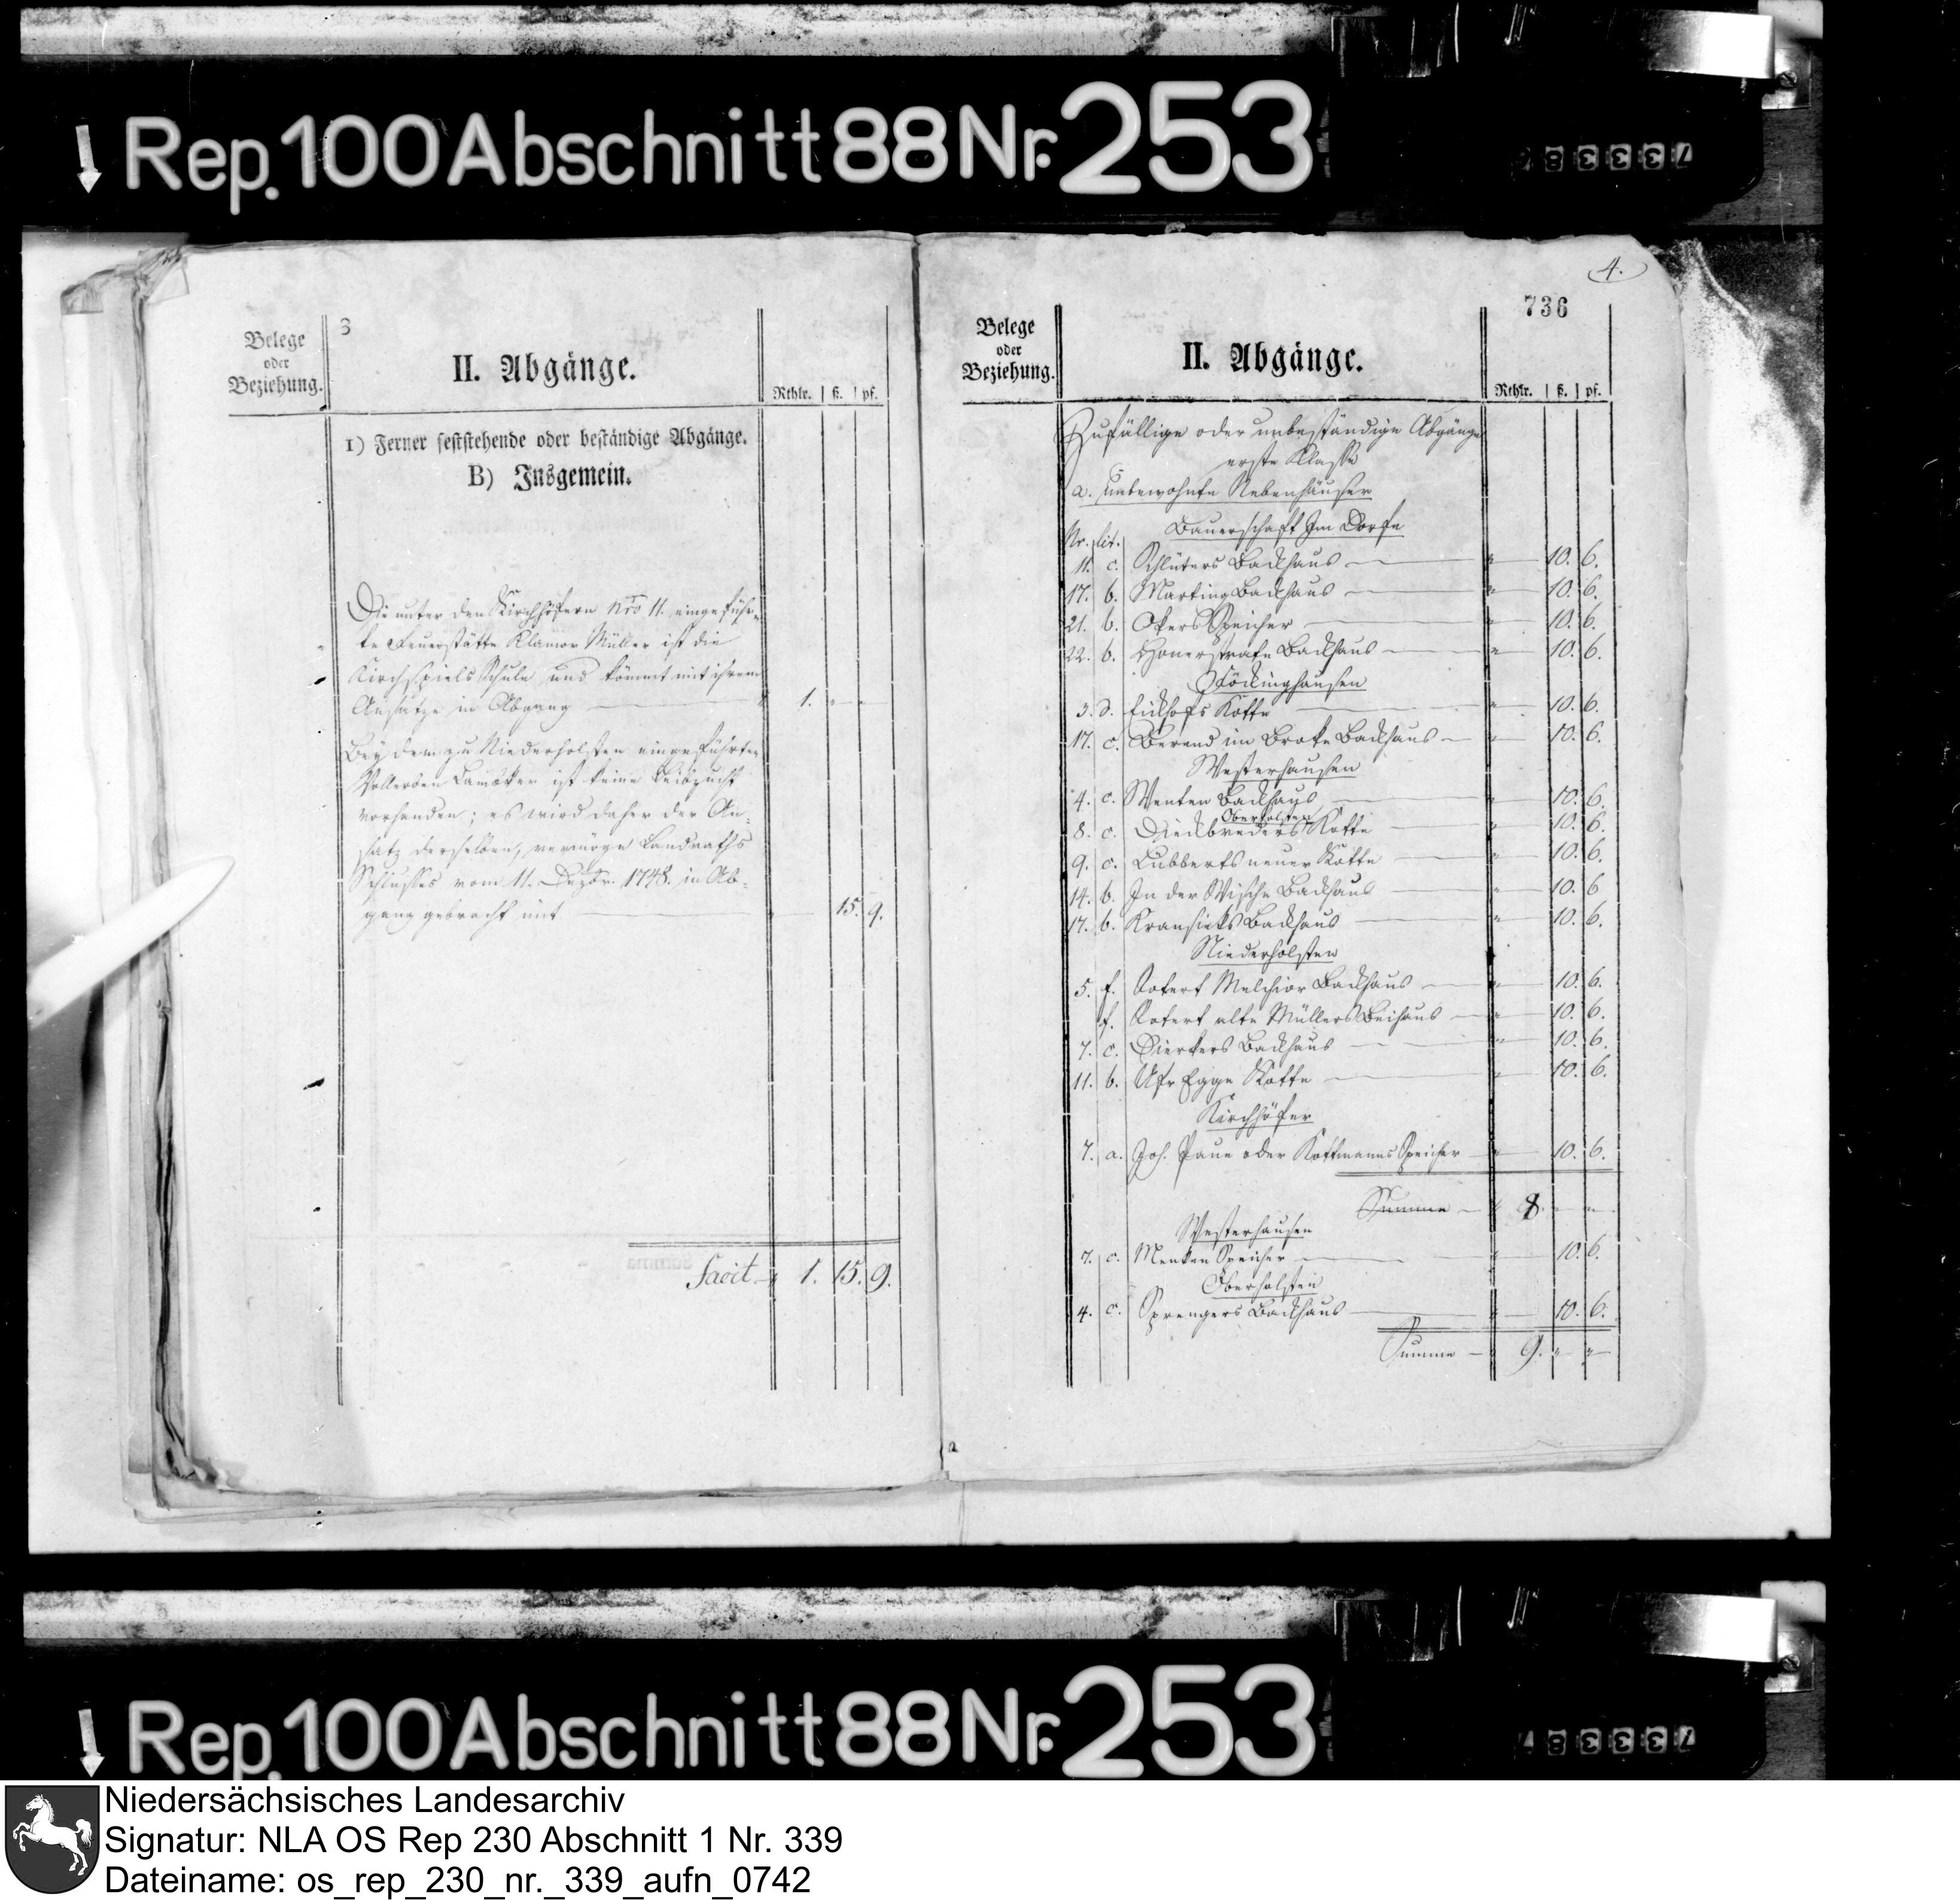 Rep. 100 Abschnitt 88 Nr. 253
Belege
oder
Beziehung.
3
II. Abgänge.
Rthlr. | ß. | pf.
1) Ferner feststehende oder beständige Abgänge.
B) Insgemein.
Die unter den Kirchhöfern Nro 11. eingeführ-
te Feuerstätte Klamor Müller ist die
Kirchspiels Schule und kömmt mit ihrem
Ansatze in Abgang — 1. „ „
Bey dem zu Niederholsten eingeführten
Vollerben ist keine Leibzucht
vorhanden; es wird daher der An-
satz derselben, vermöge Landraths
Schlusses vom 11. Dezbr. 1748. in Ab-
gang gebracht mit — „ 15. 9.
Facit — 1. 15. 9.
4.
736
Belege
oder
Beziehung.
II. Abgänge.
Rthlr. | ß. | pf.
Zufällige oder unbeständige Abgänge
erste Klasse
a. Unbewohnte Nebenhäuser
Bauerschaft Im Dorfe
Nr. lit.
11. c. Schlüters Backhaus — „ 10. 6.
17. b. Marting Backhaus — „ 10. 6.
21. b. Speicher — „ 10. 6.
22. b. Backhaus — „ 10. 6.
Föckinghausen
3. d. Eickhofs Kotte — „ 10. 6.
17. c. Berend im Broke Backhaus — „ 10. 6.
Westerhausen
4. c. Wenten Backhaus — „ 10. 6.
Oberholsten
8. c. Dieckbreders Kotte — „ 10. 6.
9. c. Lubberts neuer Kotte — „ 10. 6.
14. b. In der Wische Backhaus — „ 10. 6
17. b. Kransieks Backhaus — „ 10. 6.
Niederholsten
5. f. Rotert Melchior Backhaus — „ 10. 6.
f. Rotert alte Müllers Beihaus — „ 10. 6.
7. c. Dierkers Backhaus — „ 10. 6.
11. b. Ufr Egge Kotte — „ 10. 6.
Kirchhöfer
7. a. Joh. Paue oder Kottmanns Speicher — „ 10. 6.
Summe — 8. „ „
Westerhausen
7. c. Menken Speicher — „ 10. 6.
Oberholsten
4. c. Sprengers Backhaus — „ 10. 6.
Summe — 9. „ „
Rep. 100 Abschnitt 88 Nr. 253
Niedersächsisches Landesarchiv
Signatur: NLA OS Rep 230 Abschnitt 1 Nr. 339
Dateiname: os_rep_230_nr._339_aufn_0742